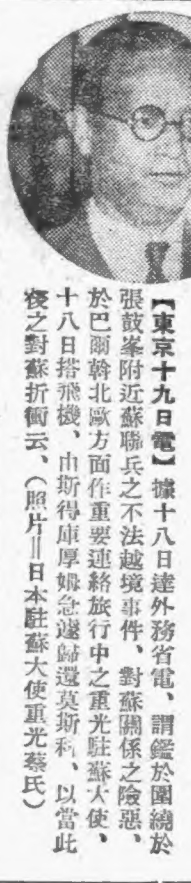 【東京十九日電】據十八日達外務省電、謂鑑於圍繞於
張鼓峯附近蘇聯兵之不法越境事件、對蘇關係之險惡、
於巴爾斡北歐方面作重要連絡旅行中之重光駐蘇大使、
十八日搭飛機、由斯得庫厚姆急遽歸還莫斯科、以當此
後之對蘇折衝云、（照片＝日本駐蘇大使重光葵氏）